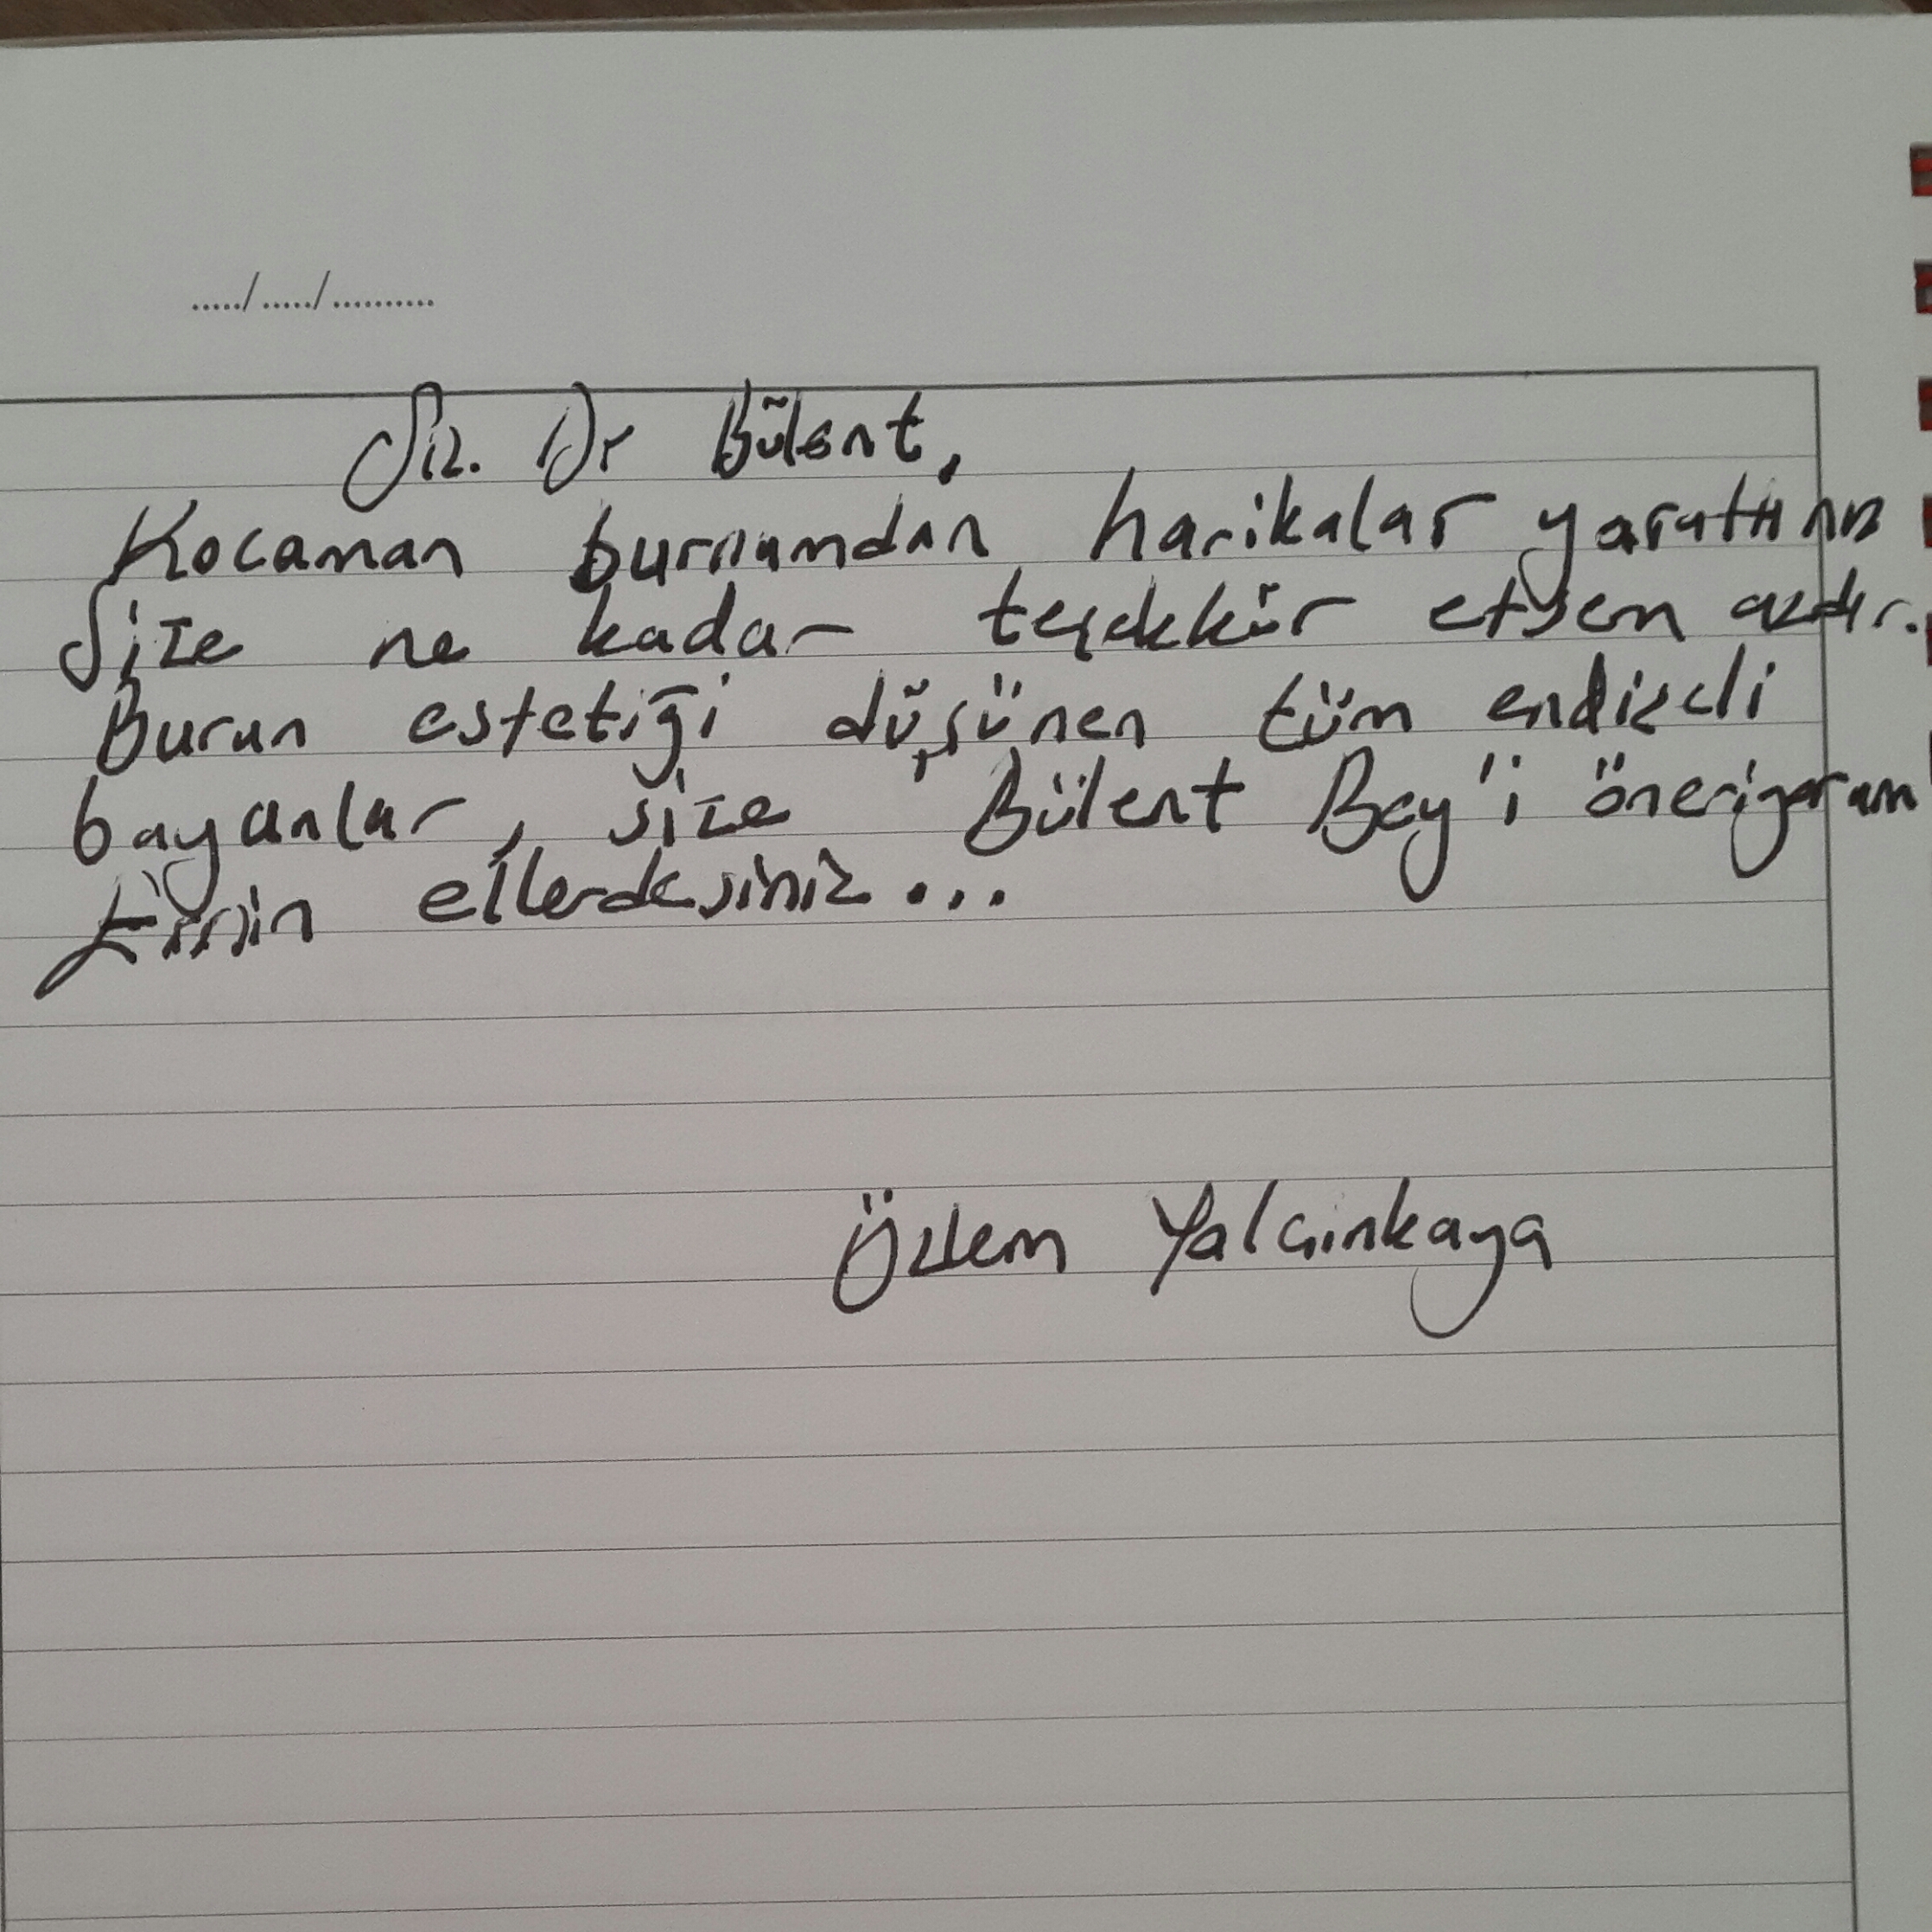 ...../...../..........
Sn. Dr Bülent,
Kocaman burnumdan harikalar yarattınız
Size ne kadar teşekkür etsem azdır.
Burun estetiği düşünen tüm endişeli
bayanlar, size Bülent Bey'i öneriyorum
Emin ellerdesiniz...
Özlem Yalçınkaya